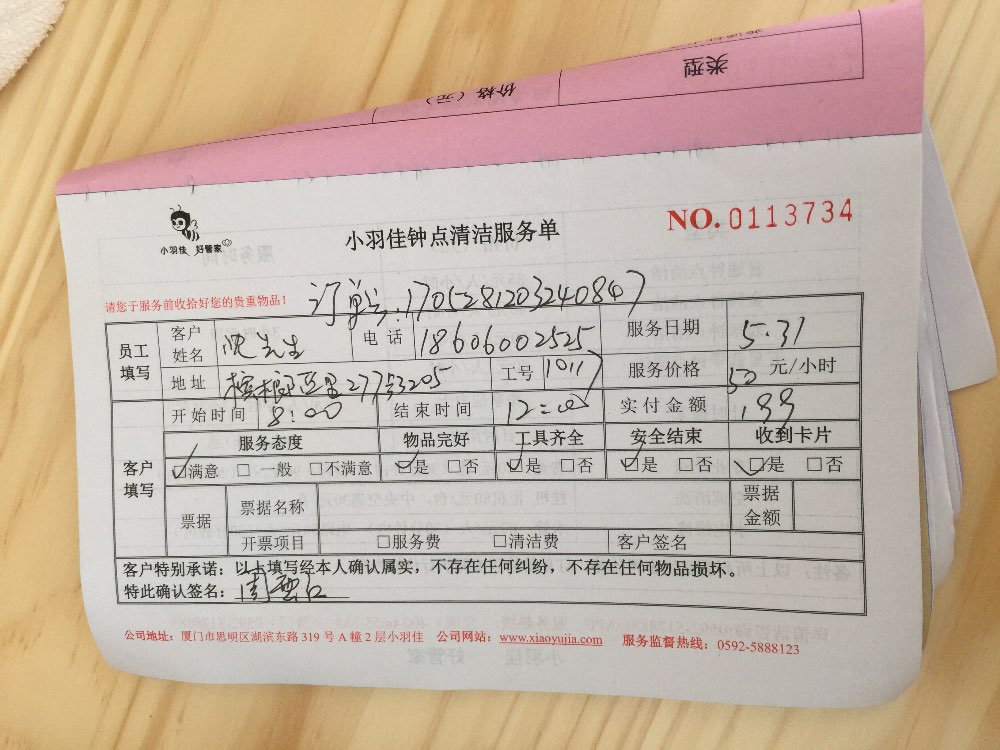 类型
价格（元）
小羽佳 好管家
小羽佳钟点清洁服务单
NO. 0113734
请您于服务前收拾好您的贵重物品！
订单号:170528120324084067
员工填写 客户姓名 沈先生 电话 18606002525 服务日期 5.31
地址 槟榔西里277号3205 工号 1011 服务价格 50 元/小时
客户填写 开始时间 8:00 结束时间 12:00 实付金额 199
服务态度 物品完好 工具齐全 安全结束 收到卡片
☑满意 □一般 □不满意 ☑是 □否 ☑是 □否 ☑是 □否 ☑是 □否
票据 票据名称 票据金额
开票项目 □服务费 □清洁费 客户签名
客户特别承诺：以上填写经本人确认属实，不存在任何纠纷，不存在任何物品损坏。
特此确认签名：
公司地址：厦门市思明区湖滨东路 319 号 A 幢 2 层小羽佳 公司网站：www.xiaoyujia.com 服务监督热线：0592-5888123